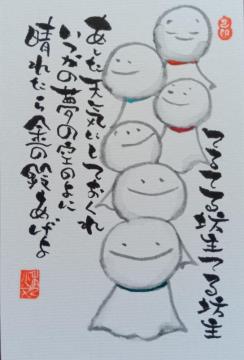 てるてる坊主てる坊主
あした天気にしておくれ
いつかの夢の空のよに
晴れたら金の鈴あげよ